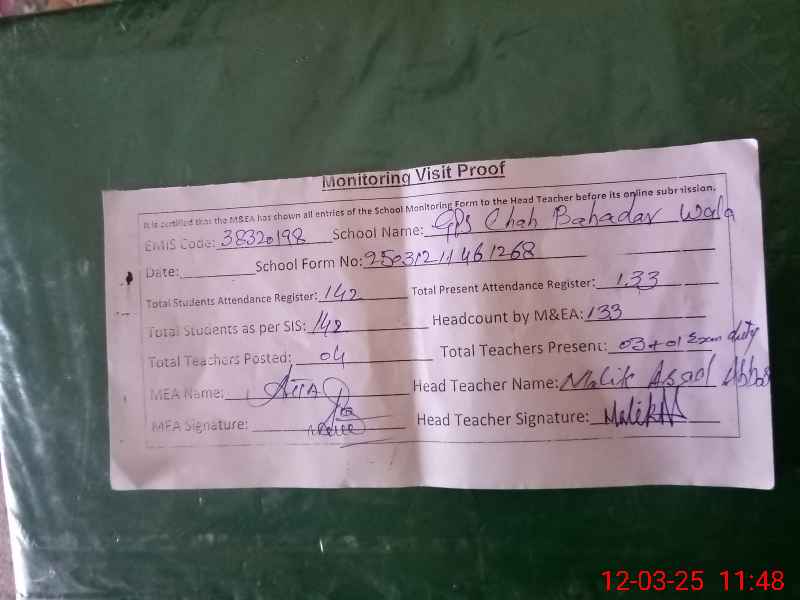 Monitoring Visit Proof
It is certified that the M&EA has shown all entries of the School Monitoring Form to the Head Teacher before its online submission.
EMIS Code: 38320198 School Name: GPS Chah Bahadar Wala
Date: School Form No: 25031211461268
Total Students Attendance Register: 142 Total Present Attendance Register: 133
Total Students as per SIS: 142 Headcount by M&EA: 133
Total Teachers Posted: 04 Total Teachers Present: 03 + 01 Exam duty
MEA Name: Head Teacher Name: Malik Asad Abbas
MEA Signature: Head Teacher Signature: Malik
12-03-25 11:48